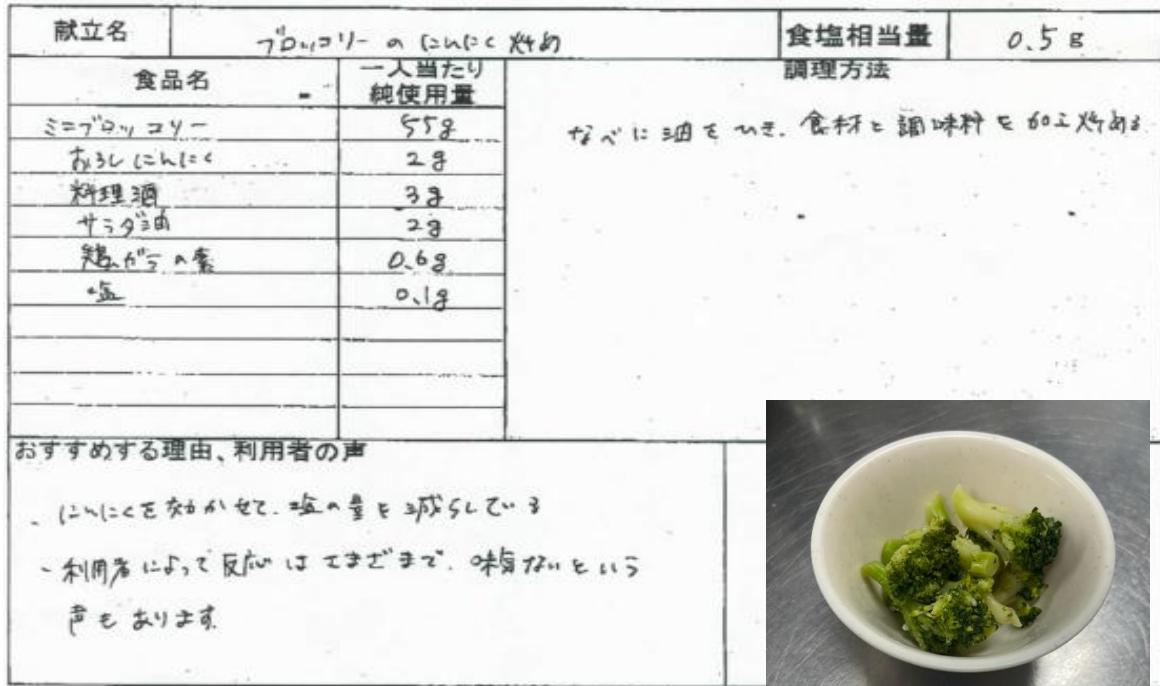 献立名 ブロッコリーのにんにく炒め 食塩相当量 0.5g
食品名 一人当たり純使用量 調理方法
ミニブロッコリー 55g
おろしにんにく 2g
料理酒 3g
サラダ油 2g
鶏ガラの素 0.6g
塩 0.1g
なべに油をひき、食材と調味料を加え炒める
おすすめする理由、利用者の声
、にんにくを効かせて、塩の量を減らしている
、利用者によって反応はさまざまで、味気ないという
声もあります。